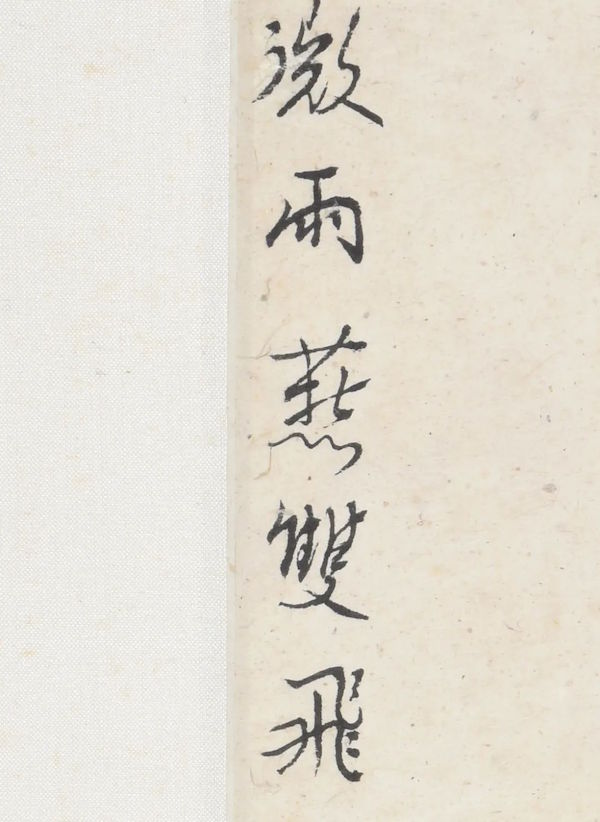 微雨燕雙飛